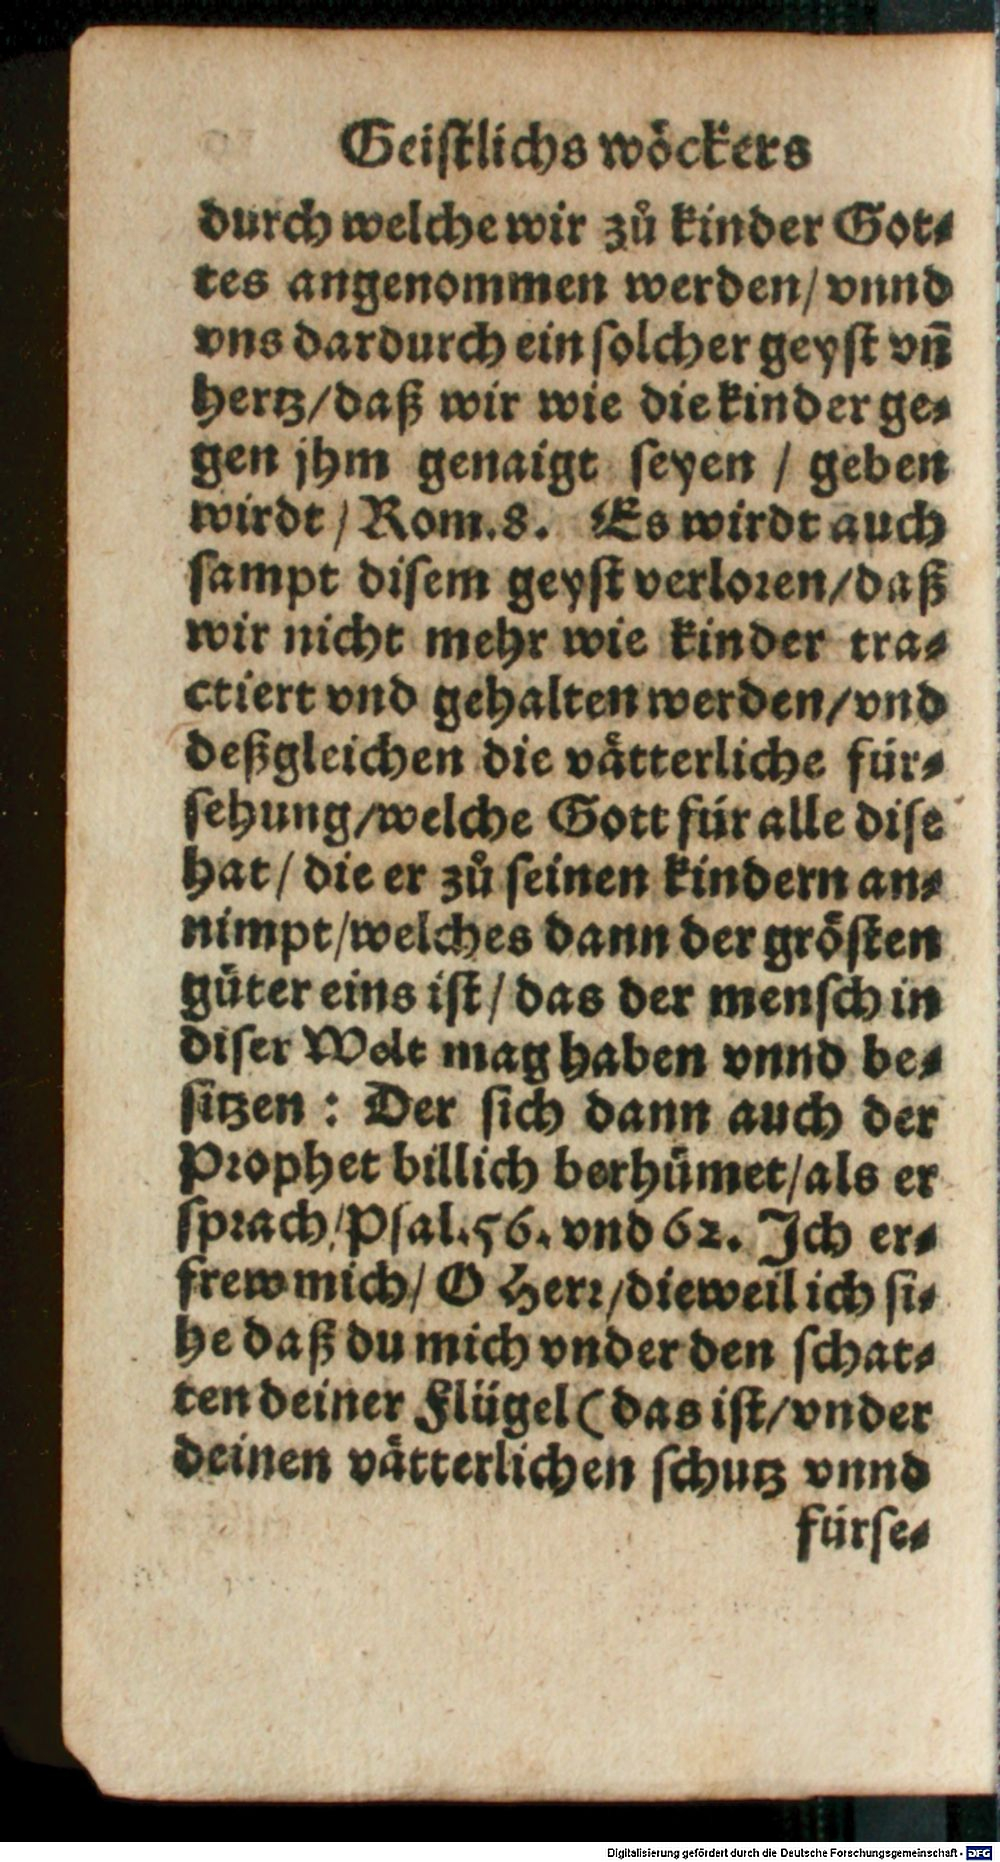 Geiſtlichs wöckers
durch welche wir zů kinder Got⸗
tes angenommen werden/ vnnd
vns dardurch ein ſolcher geyſt vn̄
hertz/daß wir wie die kinder ge⸗
gen jhm genaigt ſeyen / geben
wirdt / Rom.8. Es wirdt auch
ſampt diſem geyſt verloꝛen/daß
wir nicht mehr wie kinder tra⸗
ctiert vnd gehalten werden/vnd
deßgleichen die vaͤtterliche für⸗
ſehung/welche Gott für alle diſe
hat / die er zů ſeinen kindern an⸗
nimpt/welches dann der groͤſten
guͤter eins iſt / das der menſch in
diſer Welt mag haben vnnd be⸗
ſitzen : Der ſich dann auch der
Pꝛophet billich berhuͤmet/als er
ſpꝛach/Pſal.56. vnd 62. Jch er⸗
frew mich/ O Herꝛ/dieweil ich ſi⸗
he daß du mich vnder den ſchat⸗
ten deiner Flügel (das iſt/vnder
deinen vaͤtterlichen ſchutz vnnd
fürſe⸗
Digitalisierung gefördert durch die Deutsche Forschungsgemeinschaft - DFG